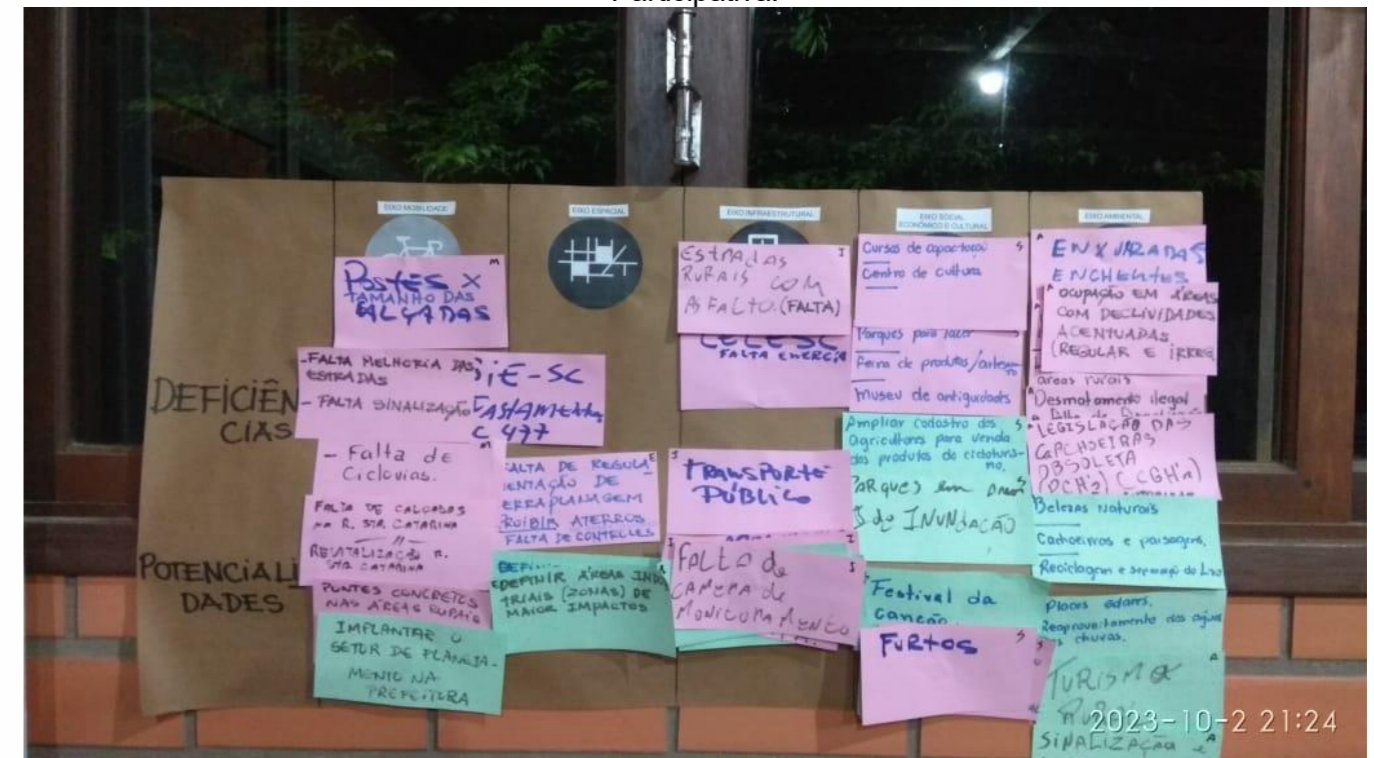 EIXO MOBILIDADE
EIXO ESPACIAL
EIXO INFRAESTRUTURAL
EIXO SOCIAL
ECONÔMICO E CULTURAL
EIXO AMBIENTAL
DEFICIÊN
CIAS
POTENCIALI
DADES
M
POSTES X
TAMANHO DAS
CALÇADAS
-FALTA MELHORIA DAS
ESTRADAS
- FALTA SINALIZAÇÃO
M
- Falta de
Ciclovias.
FALTA DE CALÇADAS
NA R. STA CATARINA
REVITALIZAÇÃO R.
STA CATARINA
PONTES CONCRETOS
NAS ÁREAS RURAIS
IMPLANTAR O
SETOR DE PLANEJA-
MENTO NA
PREFEITURA
iE-SC
477
E
ALTA DE REGULA-
ENTAÇÃO DE
ERRAPLANAGEM
ROIBIR ATERROS
FALTA DE CONTROLES
DEFINIR ÁREAS INDU
TRIAIS (ZONAS) DE
MAIOR IMPACTOS
I
ESTRADAS
RURAIS COM
ASFALTO.(FALTA)
CELESC
FALTA ENERGIA
I
TRANSPORTE
PÚBLICO
I
FALTA de
CAMERA de
MONITORAMENTO
S
Cursos de capacitação
Centro de cultura
Parques para lazer
Feira de produtos/artesa
Museu de antiguidades
S
Ampliar cadastro dos
agricultores para venda
dos produtos do cicloturis-
mo.
S
PARQUES em áreas
S de INUNDAÇÃO
Festival da
canção.
S
FURTOS
A
ENXURRADAS
ENCHENTES
A
OCUPAÇÃO EM ÁREAS
COM DECLIVIDADES
ACENTUADAS
(REGULAR E IRREG
areas rurais
Desmatamento ilegal
A
LEGISLAÇÃO DAS
CACHOEIRAS
OBSOLETA
(PCH's) (CGH's)
Belezas Naturais
Cachoeiras e paisagens.
Reciclagem e separação do Lixo
Placas solares.
Reaproveitamento das águas
chuvas.
A
TURISMO
RURAL
A
SINALIZAÇÃO e
2023-10-2 21:24